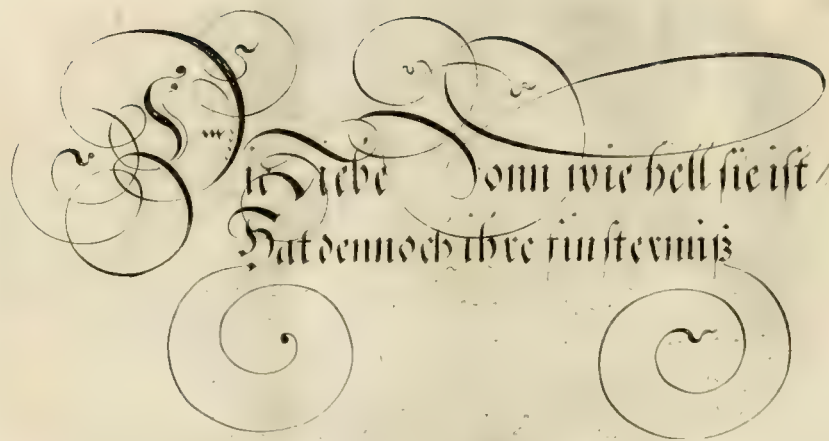 Die Liebe Sonn wie hell sie ist /
Hat dennoch ihre finsternuß